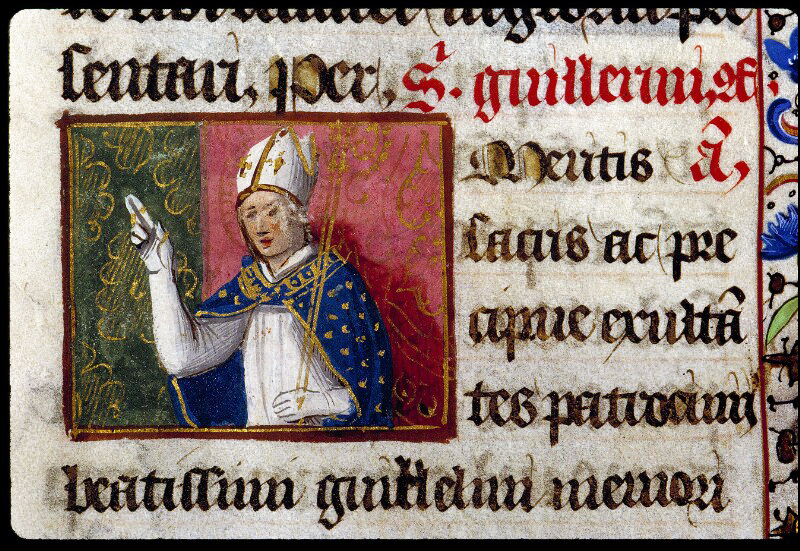 sentari, Per, S. guillermi,
Meritis a,
sacris ac pre
cipuie exulta
tes patrocini
beatissimi guillelmi memori